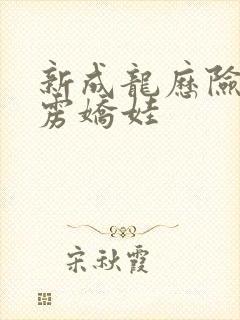 新成龍歷險
雳嬌娃
宋秋霞